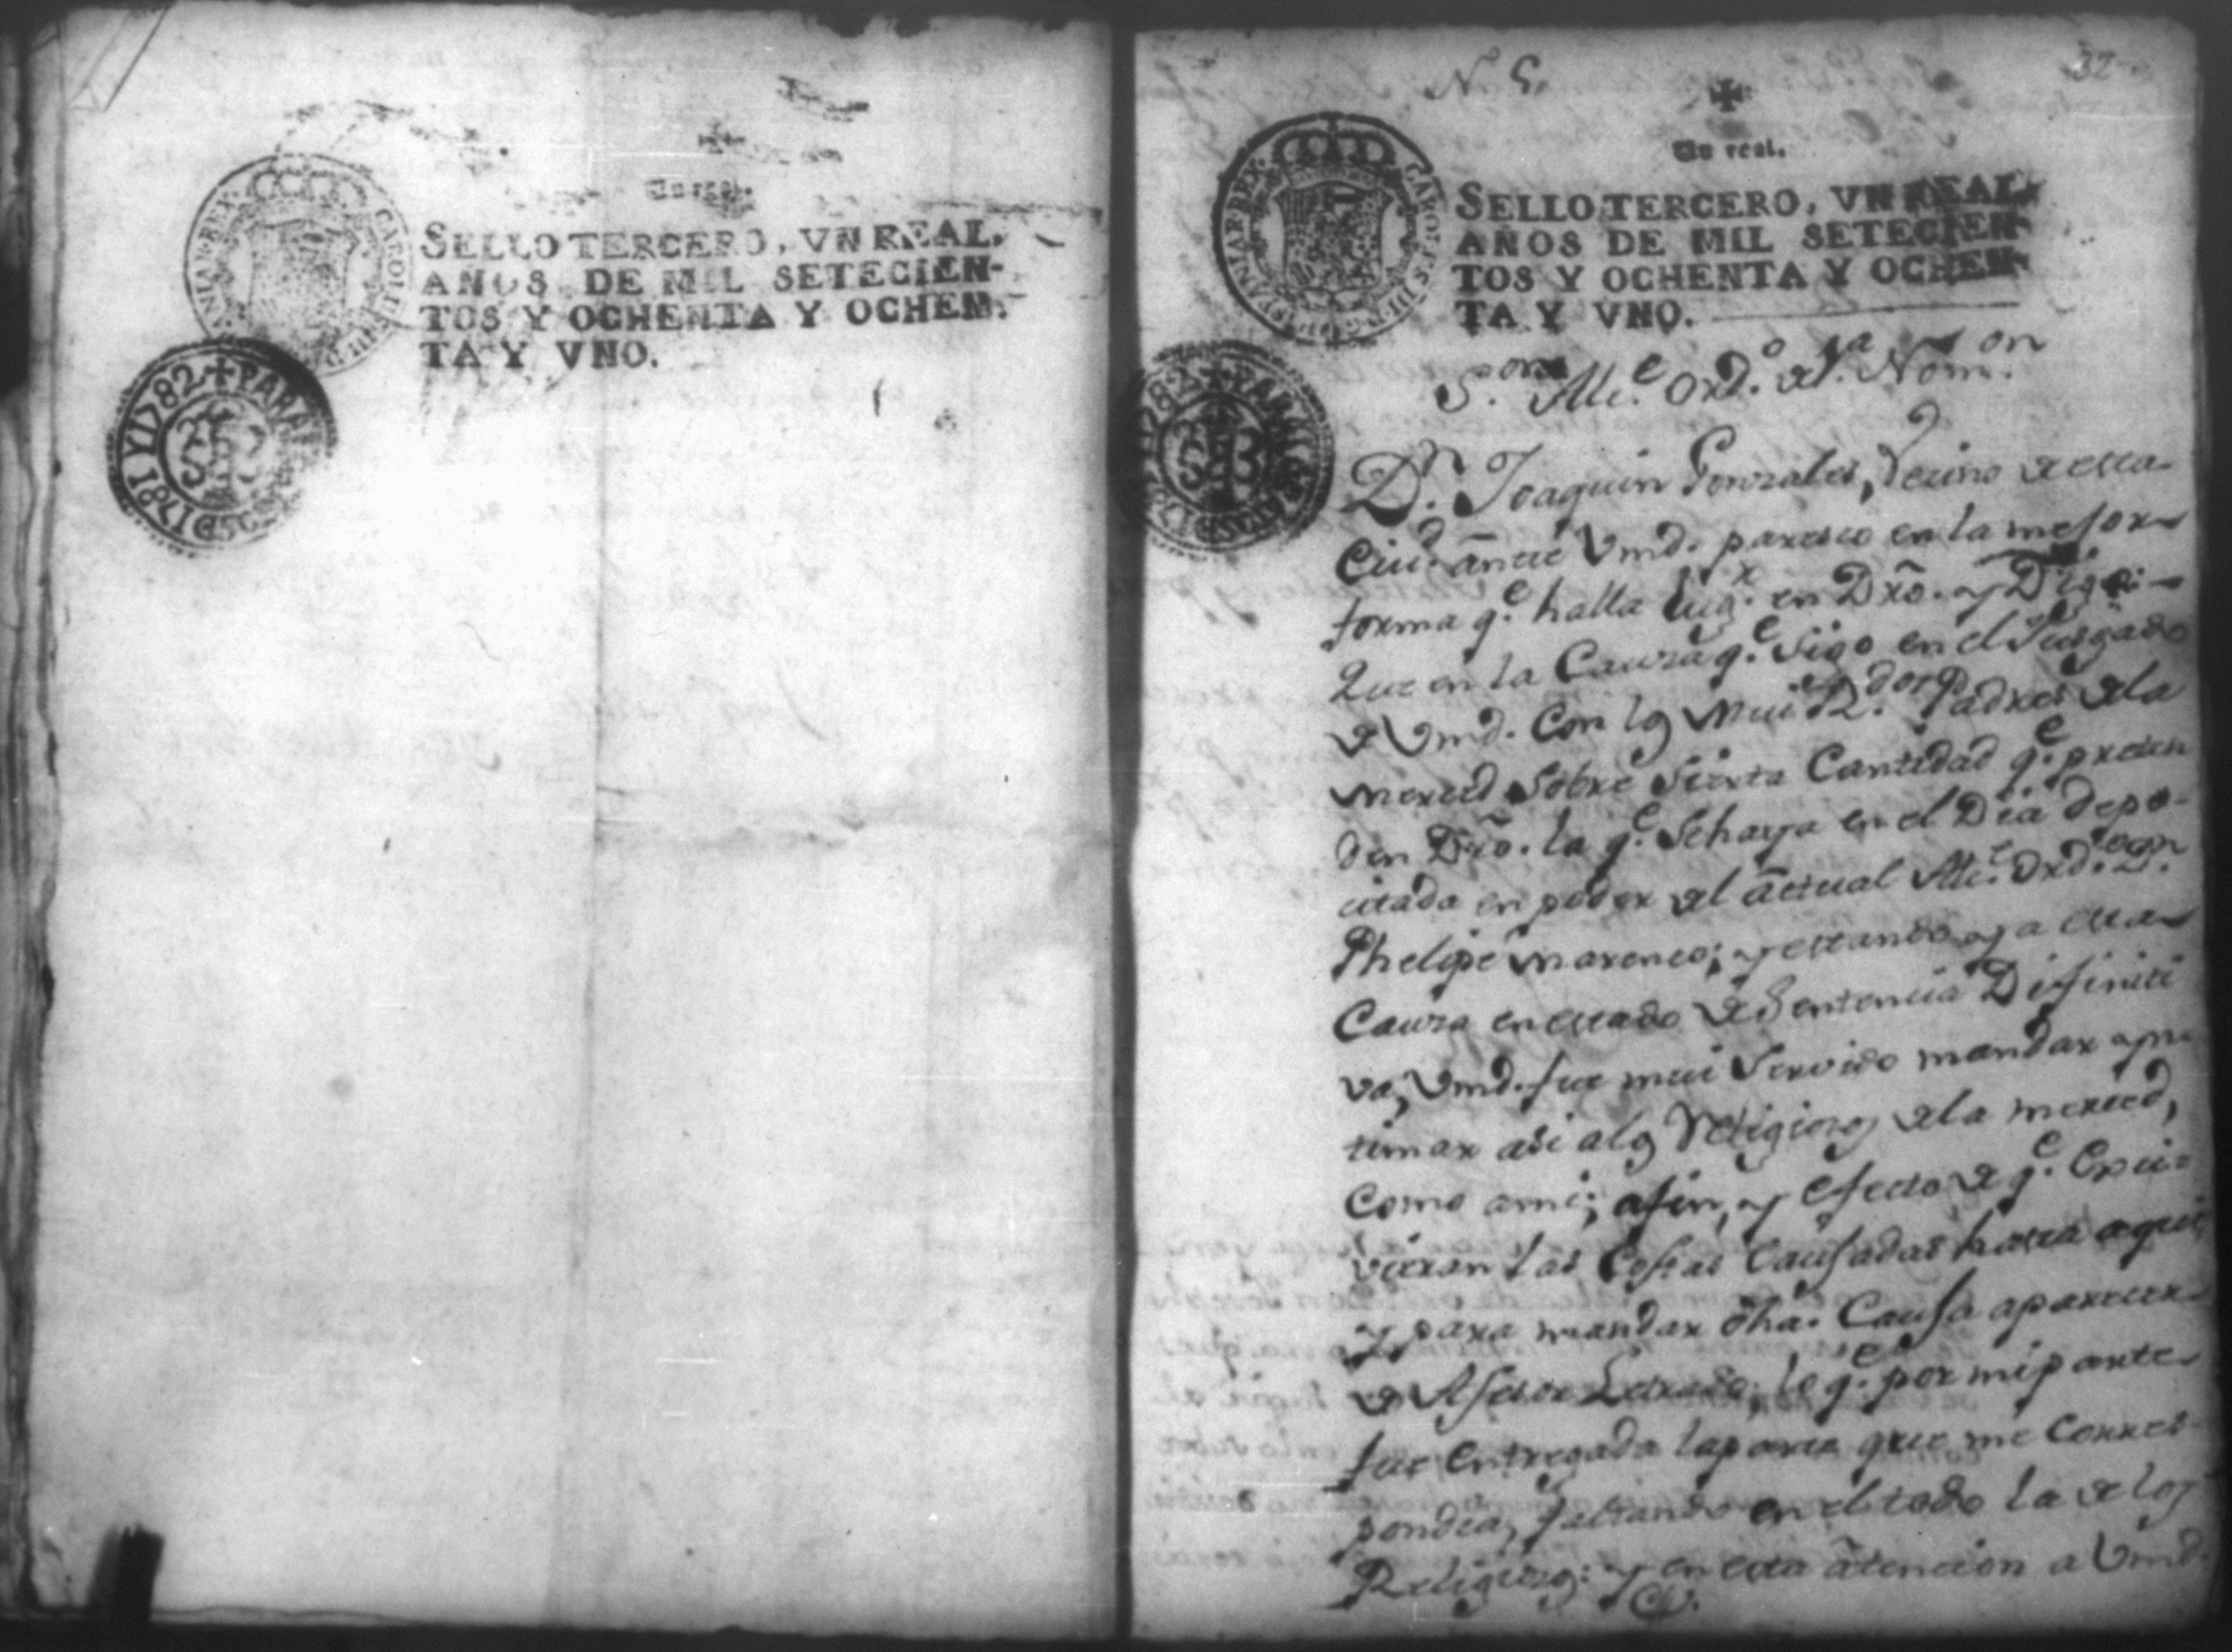 Un real.
SELLO TERCERO, VN REAL,
AÑOS DE MIL SETECIEN-
TOS Y OCHENTA Y OCHEN-
TA Y VNO.
1781 Y 1782 + PARA
N 5,
32
Un real.
SELLO TERCERO, VN REAL,
AÑOS DE MIL SETECIEN-
TOS Y OCHENTA Y OCHEN-
TA Y VNO.
CAROLUS III D G HISPANIAR REX
S.or Alc.e Ord.o de 1.a Nom.on
D.n Joaquin Gonzales, Vecino de esta
Ciud.d añte Vmd. paresco en la mejor
forma q.e halla lug.r en Dr̃o. y Digo:
Que en la Cauza q.e Sigo en el Jusgado
de Vmd. Con los mui R.dos Padres de la
merced sobre Sierta Cantidad q.e preten
den Dr̃o. la q.e Se haya en el Dia depo-
citada en poder del ãctual Alc.e Ord.o D.n
Phelipe marenco; y estando ya esta
Cauza en estado de Sentencia Difiniti
va, Vmd. fue mui Servido mandar yn
timar asi a los Religiosos de la merced,
Como ami; afin, y efecto de q.e Exsi-
vieran las Costas Causadas hasta aqui
y para mandar dh̃a. Causa a pareser
de Asesor Letrado; lo q.e por mi parte
fue entregada la parte que me Corres-
pondia, faltando en el todo la de los
Religiosos: y en esta ãtencion a Vmd.